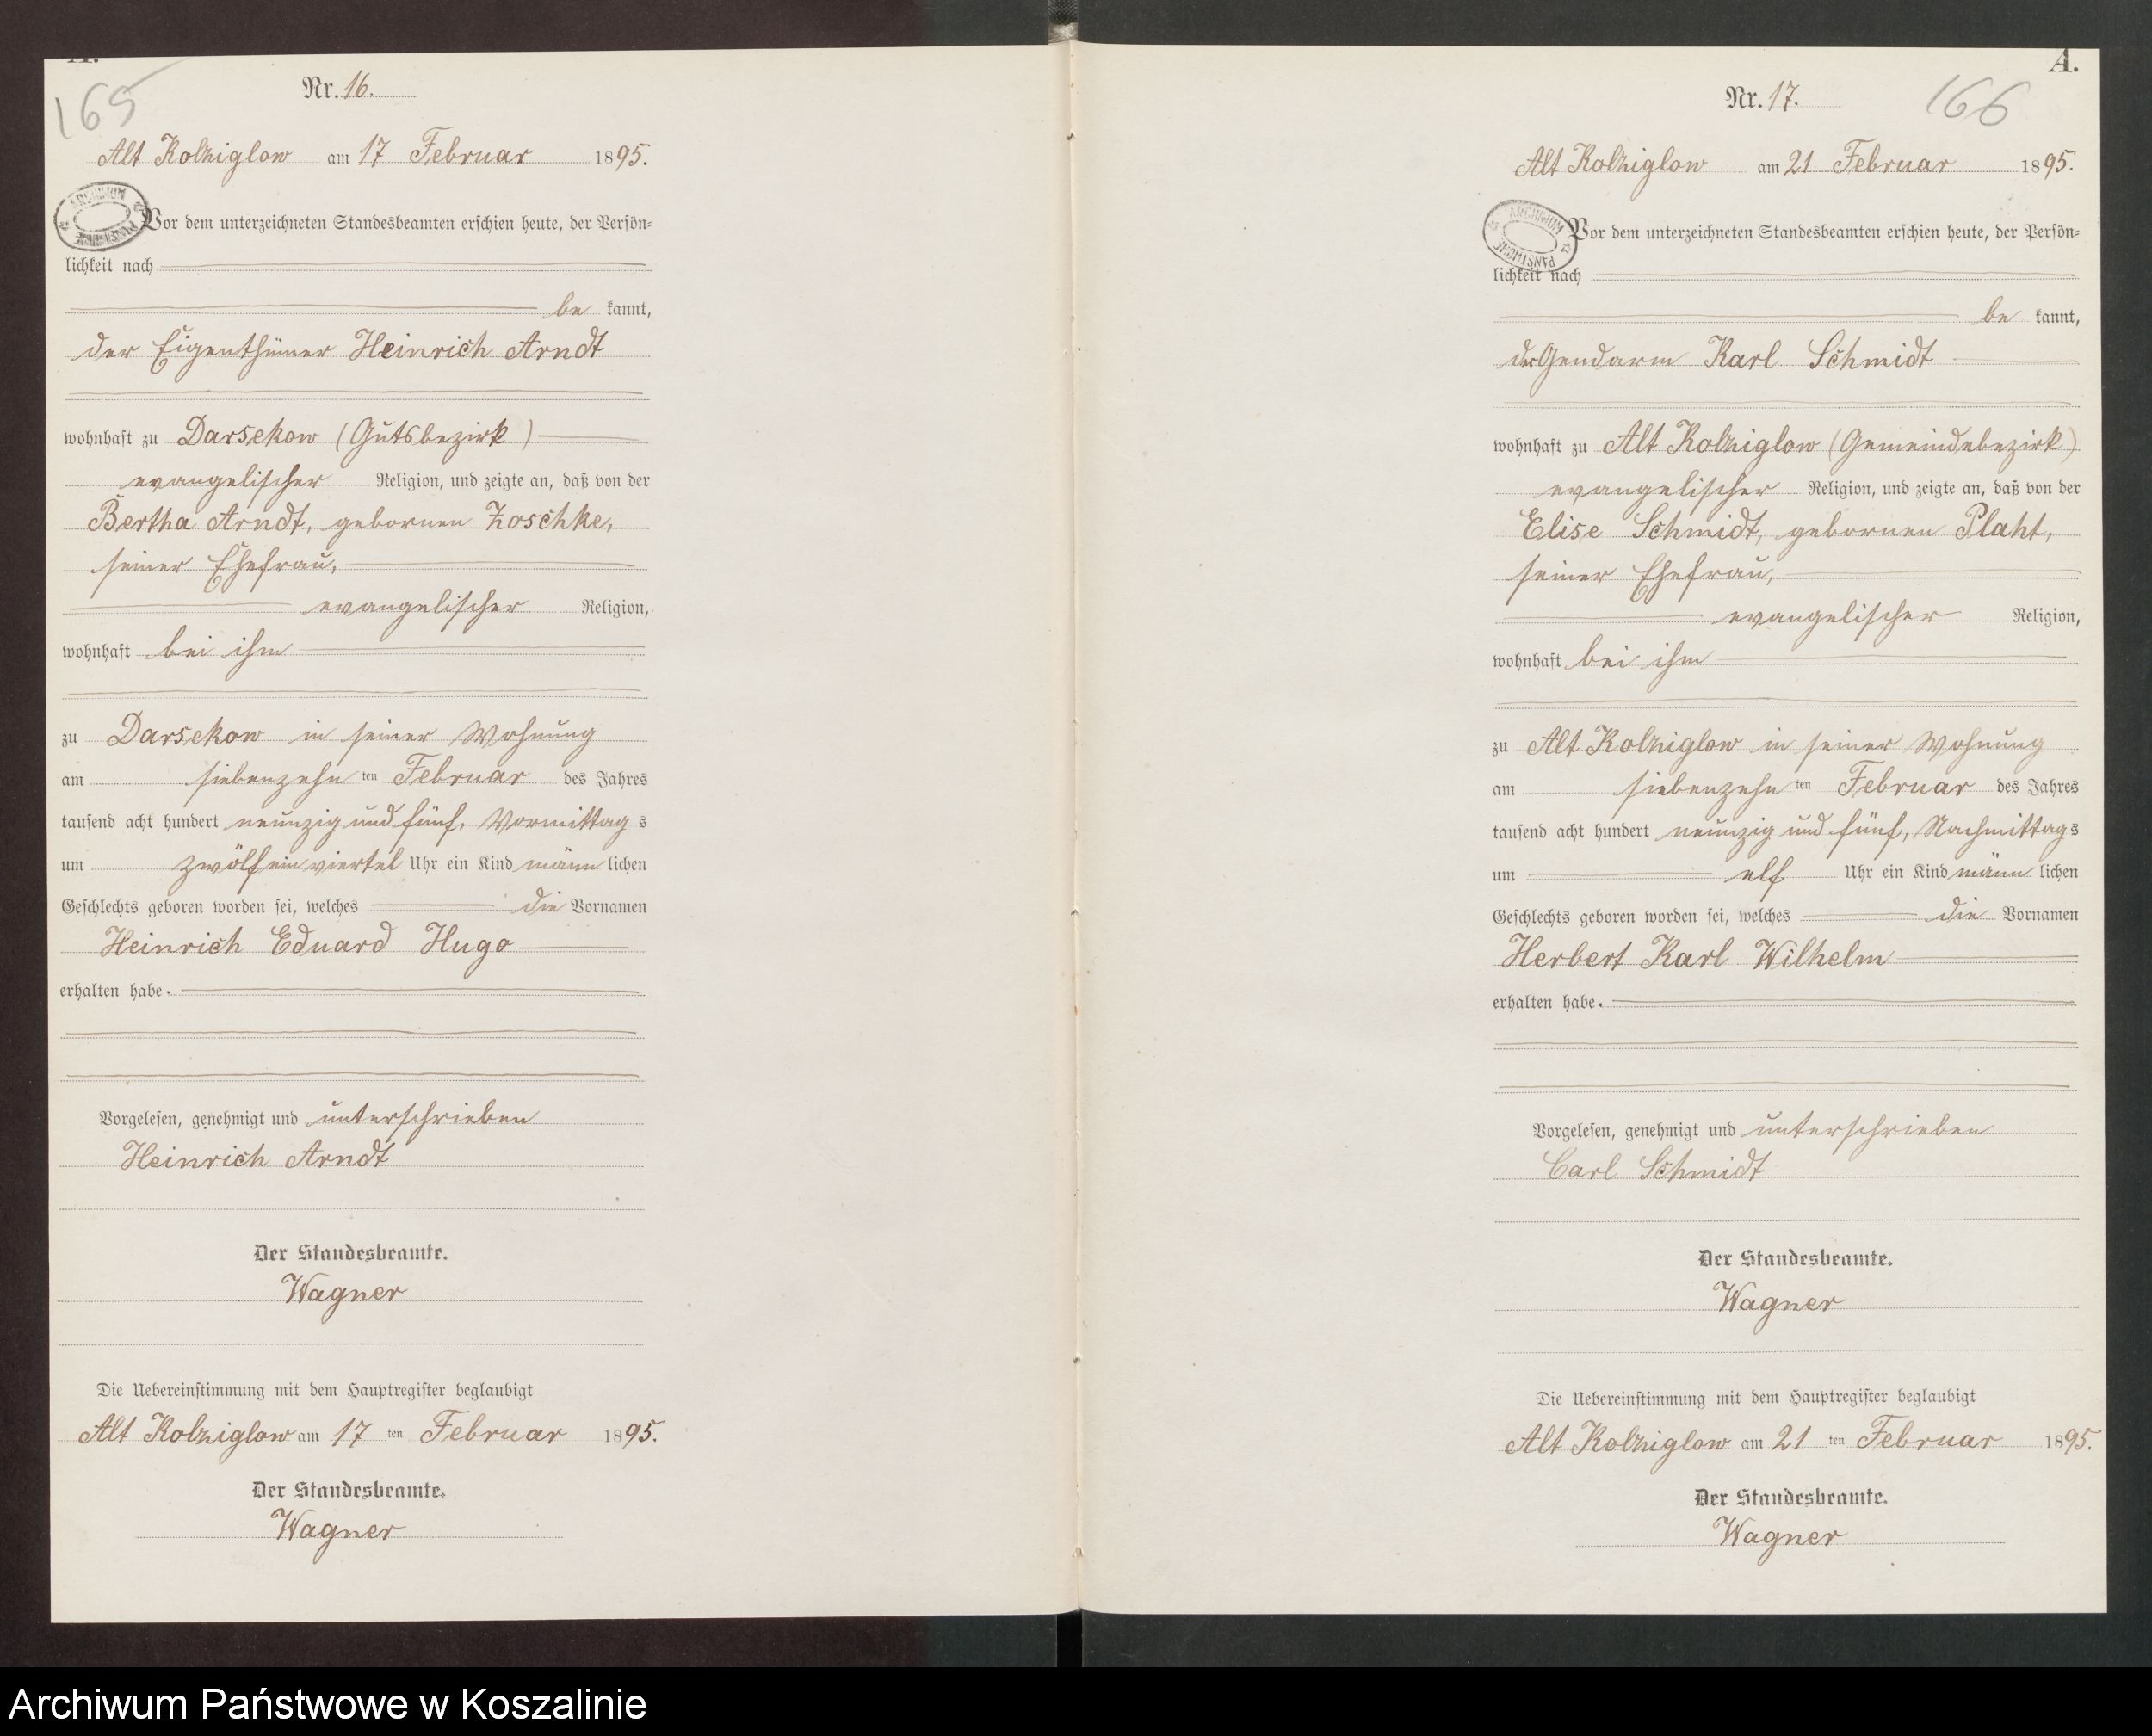 A.
165
Nr. 16.
Alt Kolziglow am 17 Februar 1895.
ARCHIWUM PAŃSTWOWE
Vor dem unterzeichneten Standesbeamten erschien heute, der Persön-
lichkeit nach
be kannt,
der Eigenthümer Heinrich Arndt
wohnhaft zu Darsekow (Gutsbezirk)
evangelischer Religion, und zeigte an, daß von der
Bertha Arndt, gebornen Zoschke,
seiner Ehefrau,
evangelischer Religion,
wohnhaft bei ihm
zu Darsekow in seiner Wohnung
am siebenzehn ten Februar des Jahres
tausend acht hundert neunzig und fünf, Vormittag s
um zwölf ein viertel Uhr ein Kind männ lichen
Geschlechts geboren worden sei, welches die Vornamen
Heinrich Eduard Hugo
erhalten habe.
Vorgelesen, genehmigt und unterschrieben
Heinrich Arndt
Der Standesbeamte.
Wagner
Die Uebereinstimmung mit dem Hauptregister beglaubigt
Alt Kolziglow am 17 ten Februar 1895.
Der Standesbeamte.
Wagner
A.
166
Nr. 17.
Alt Kolziglow am 21 Februar 1895.
ARCHIWUM PAŃSTWOWE
Vor dem unterzeichneten Standesbeamten erschien heute, der Persön-
lichkeit nach
be kannt,
der Gendarm Karl Schmidt
wohnhaft zu Alt Kolziglow (Gemeindebezirk)
evangelischer Religion, und zeigte an, daß von der
Elise Schmidt, gebornen Plaht,
seiner Ehefrau,
evangelischer Religion,
wohnhaft bei ihm
zu Alt Kolziglow in seiner Wohnung
am siebenzehn ten Februar des Jahres
tausend acht hundert neunzig und fünf, Nachmittag s
um elf Uhr ein Kind männ lichen
Geschlechts geboren worden sei, welches die Vornamen
Herbert Karl Wilhelm
erhalten habe.
Vorgelesen, genehmigt und unterschrieben
Carl Schmidt
Der Standesbeamte.
Wagner
Die Uebereinstimmung mit dem Hauptregister beglaubigt
Alt Kolziglow am 21 ten Februar 1895.
Der Standesbeamte.
Wagner
Archiwum Państwowe w Koszalinie